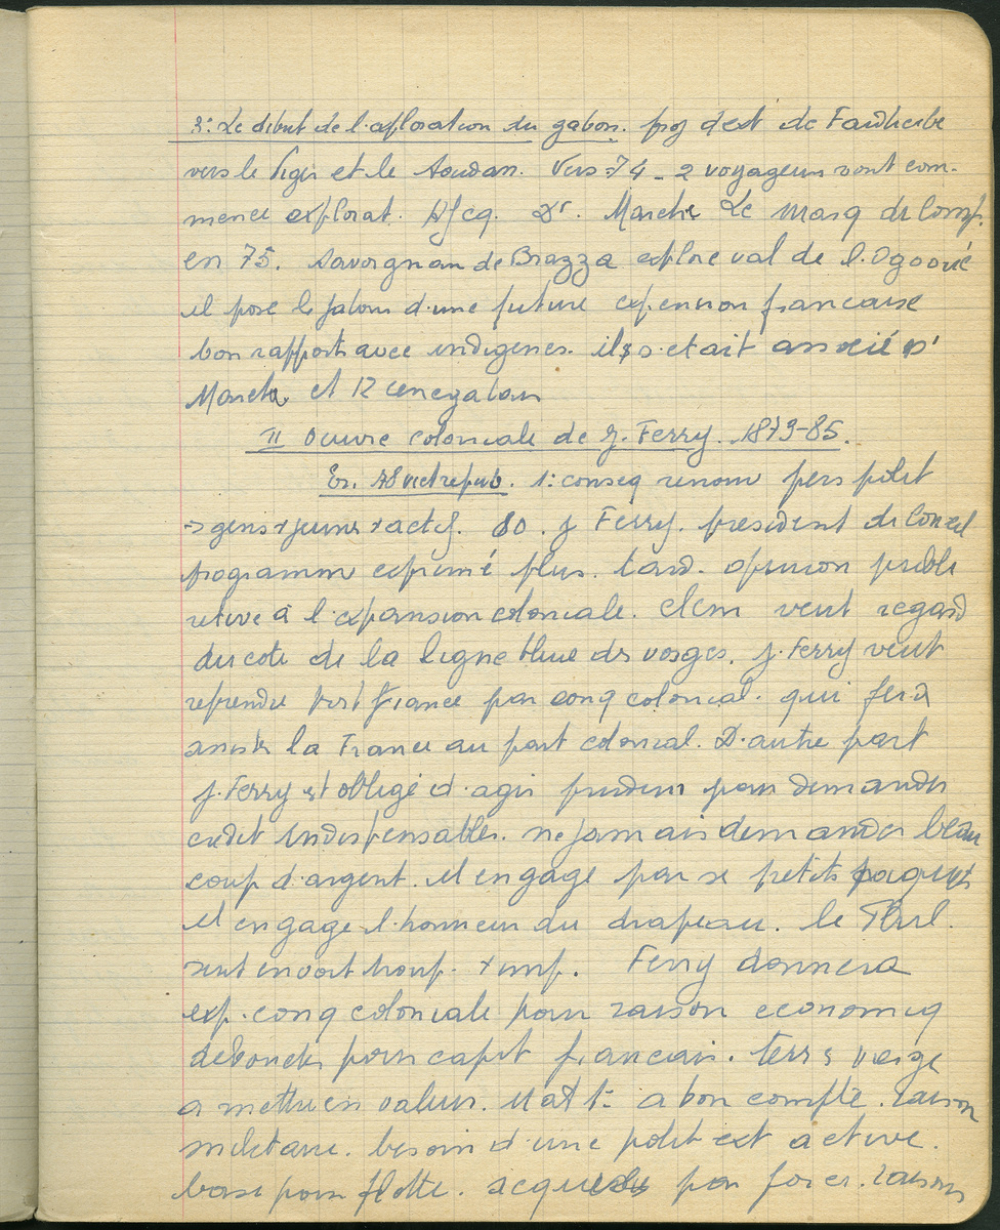 3: Le debut de l'exploration du gabon. proj d'ext de Faidherbe
vers le Niger et le Soudan. Vers 74 - 2 voyageurs vont com-
mencer explorat. Afcq. Dr. Marche Le marq de Comp.
en 75. Savorgnan de Brazza explore val de l'Ogooué
il pose le jalons d'une future expension francaise
bon rapports avec indigenes. il s'etait associé
Marche et 12 cenegalais
II Oeuvre coloniale de J. Ferry. 1879-85.
En. 78 vict repub. 1: conseq renouv pers polit
=> gens + jeunes + actifs. 80. J Ferry. president du Conseil
programme exprimé plus. tard. opinion publi
retive à l'expansion coloniale. Clem veut regard
du cote de la ligne bleue des vosges. J. Ferry veut
reprendre France par conq colonial. qui fera
la France au part colonial. D'autre part
J. Ferry est obligé d'agir prudem pour demander
credit indispensables. ne jamais demander beau
coup d'argent. il engage par se petits paquets
il engage l'honneur du drapeau. le Parl.
envoit troup. + imp. Ferry donnera
exp. conq coloniale pour raison economiq
debouchés pour capit francais. terres vierge
a mettre en valeur. mat 1e a bon compte. raison
militaire. besoin d'une polit ext active.
base pour flotte. par force. raisons